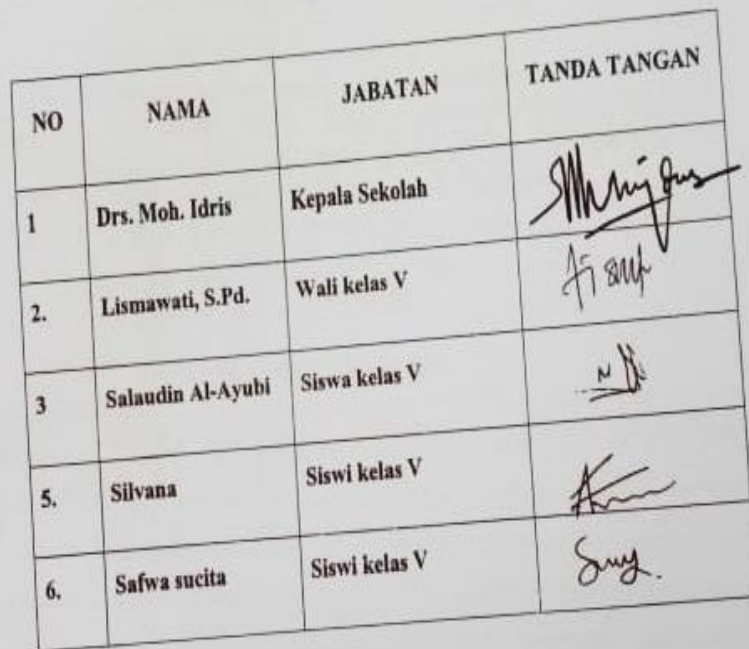 NO NAMA JABATAN TANDA TANGAN
1 Drs. Moh. Idris Kepala Sekolah
2. Lismawati, S.Pd. Wali kelas V
3 Salaudin Al-Ayubi Siswa kelas V
5. Silvana Siswi kelas V
6. Safwa sucita Siswi kelas V